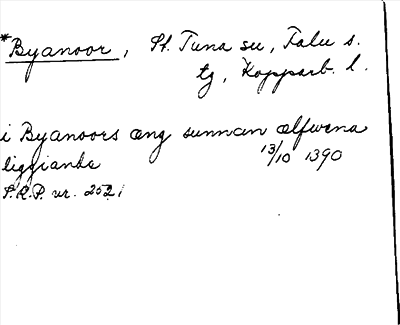 *Byanoor, St. Tuna sn, Falu s.
tg, Kopparb. l.
i Byanoors æng sunnan ælfwena
liggiande 13/10 1390
S.R.P. nr. 2521